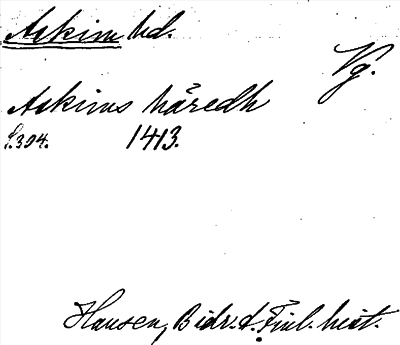 Askim hd.
Vg.
Askims häredh
s. 304. 1413.
Hausen, Bidr. t. Finl. hist.